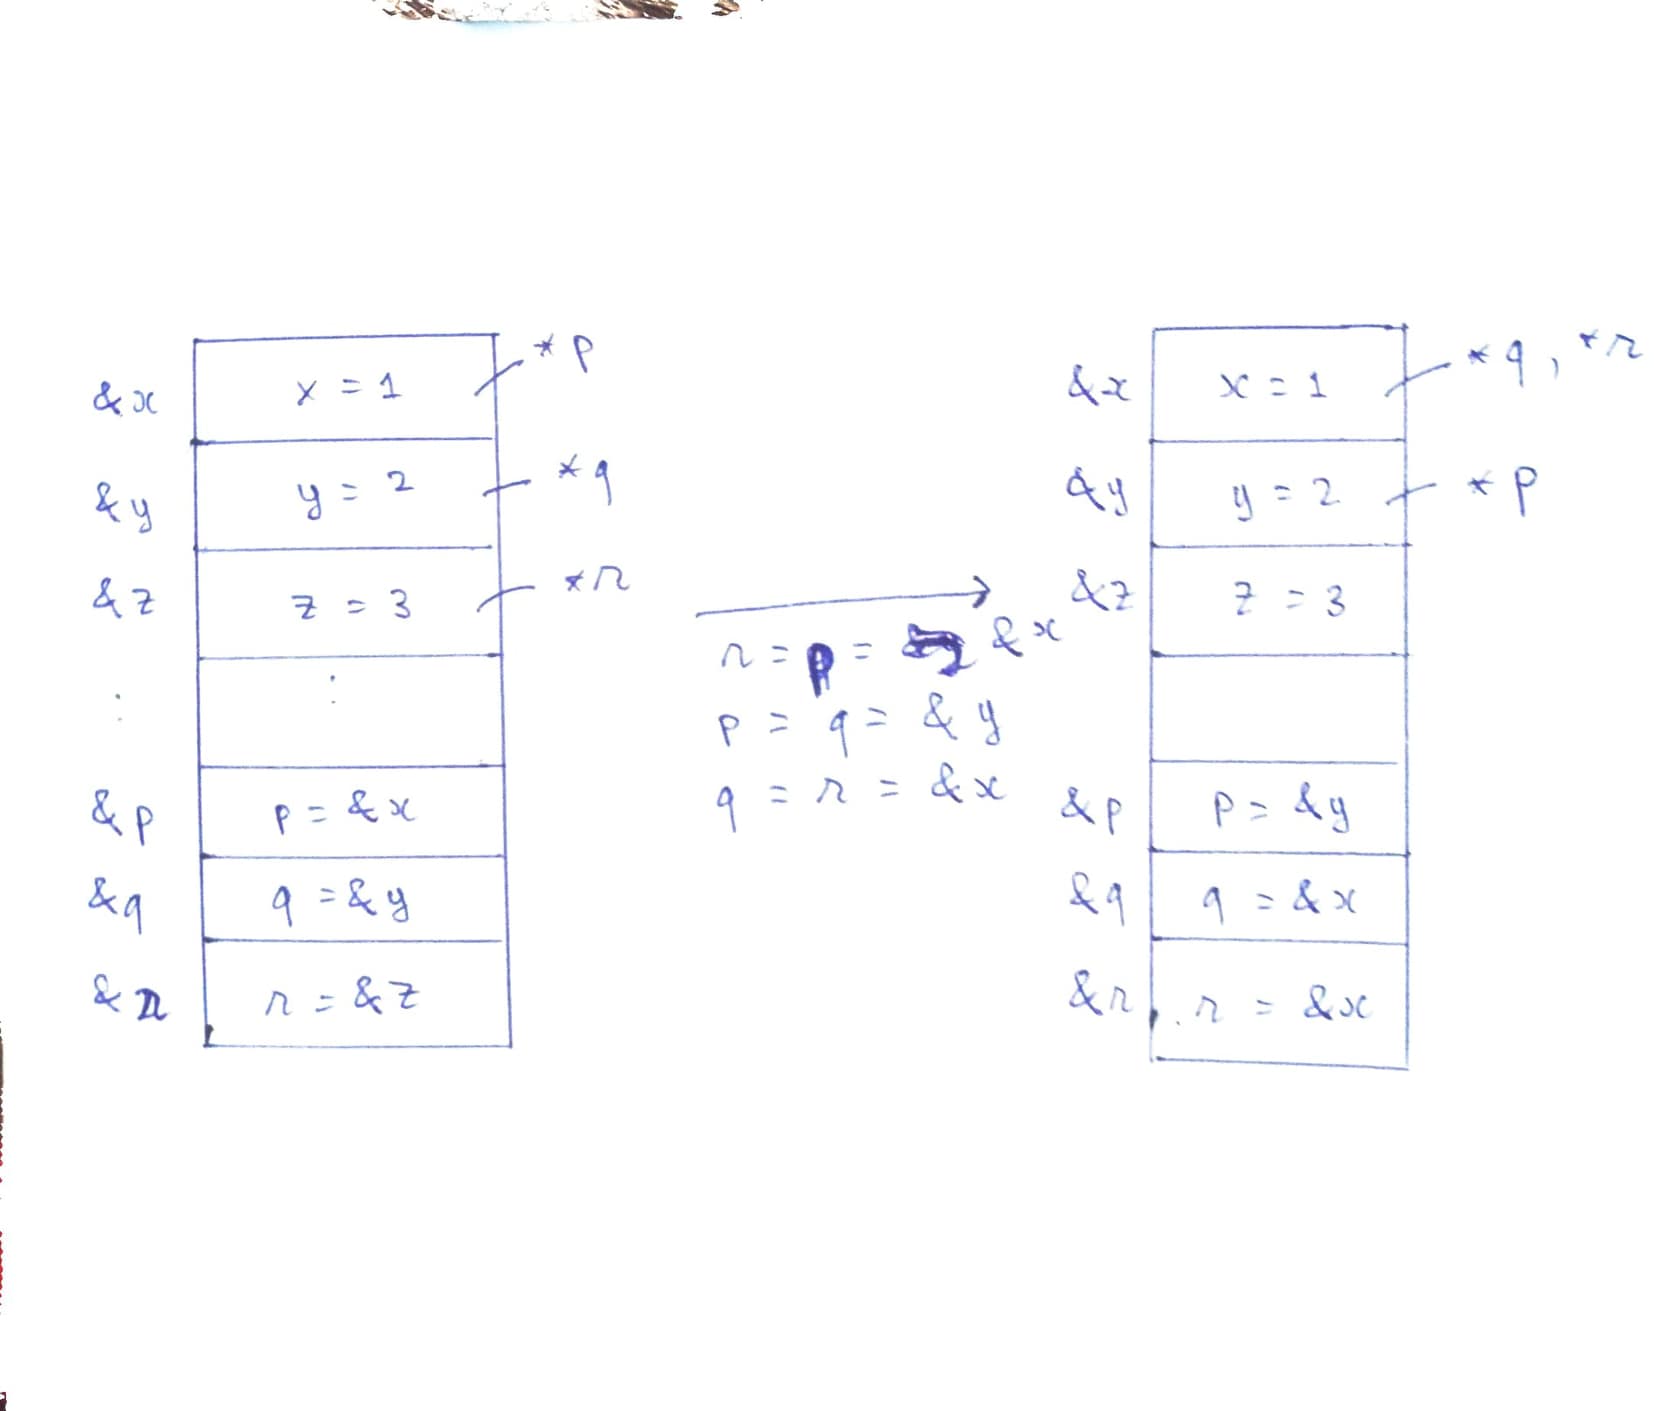 &x x = 1 *p
&y y = 2 *q
&z z = 3 *r
: :
&p p = &x
&q q = &y
&r r = &z
r = p = &x
p = q = &y
q = r = &x
&x x = 1 *q, *r
&y y = 2 *p
&z z = 3
&p p = &y
&q q = &x
&r r = &x